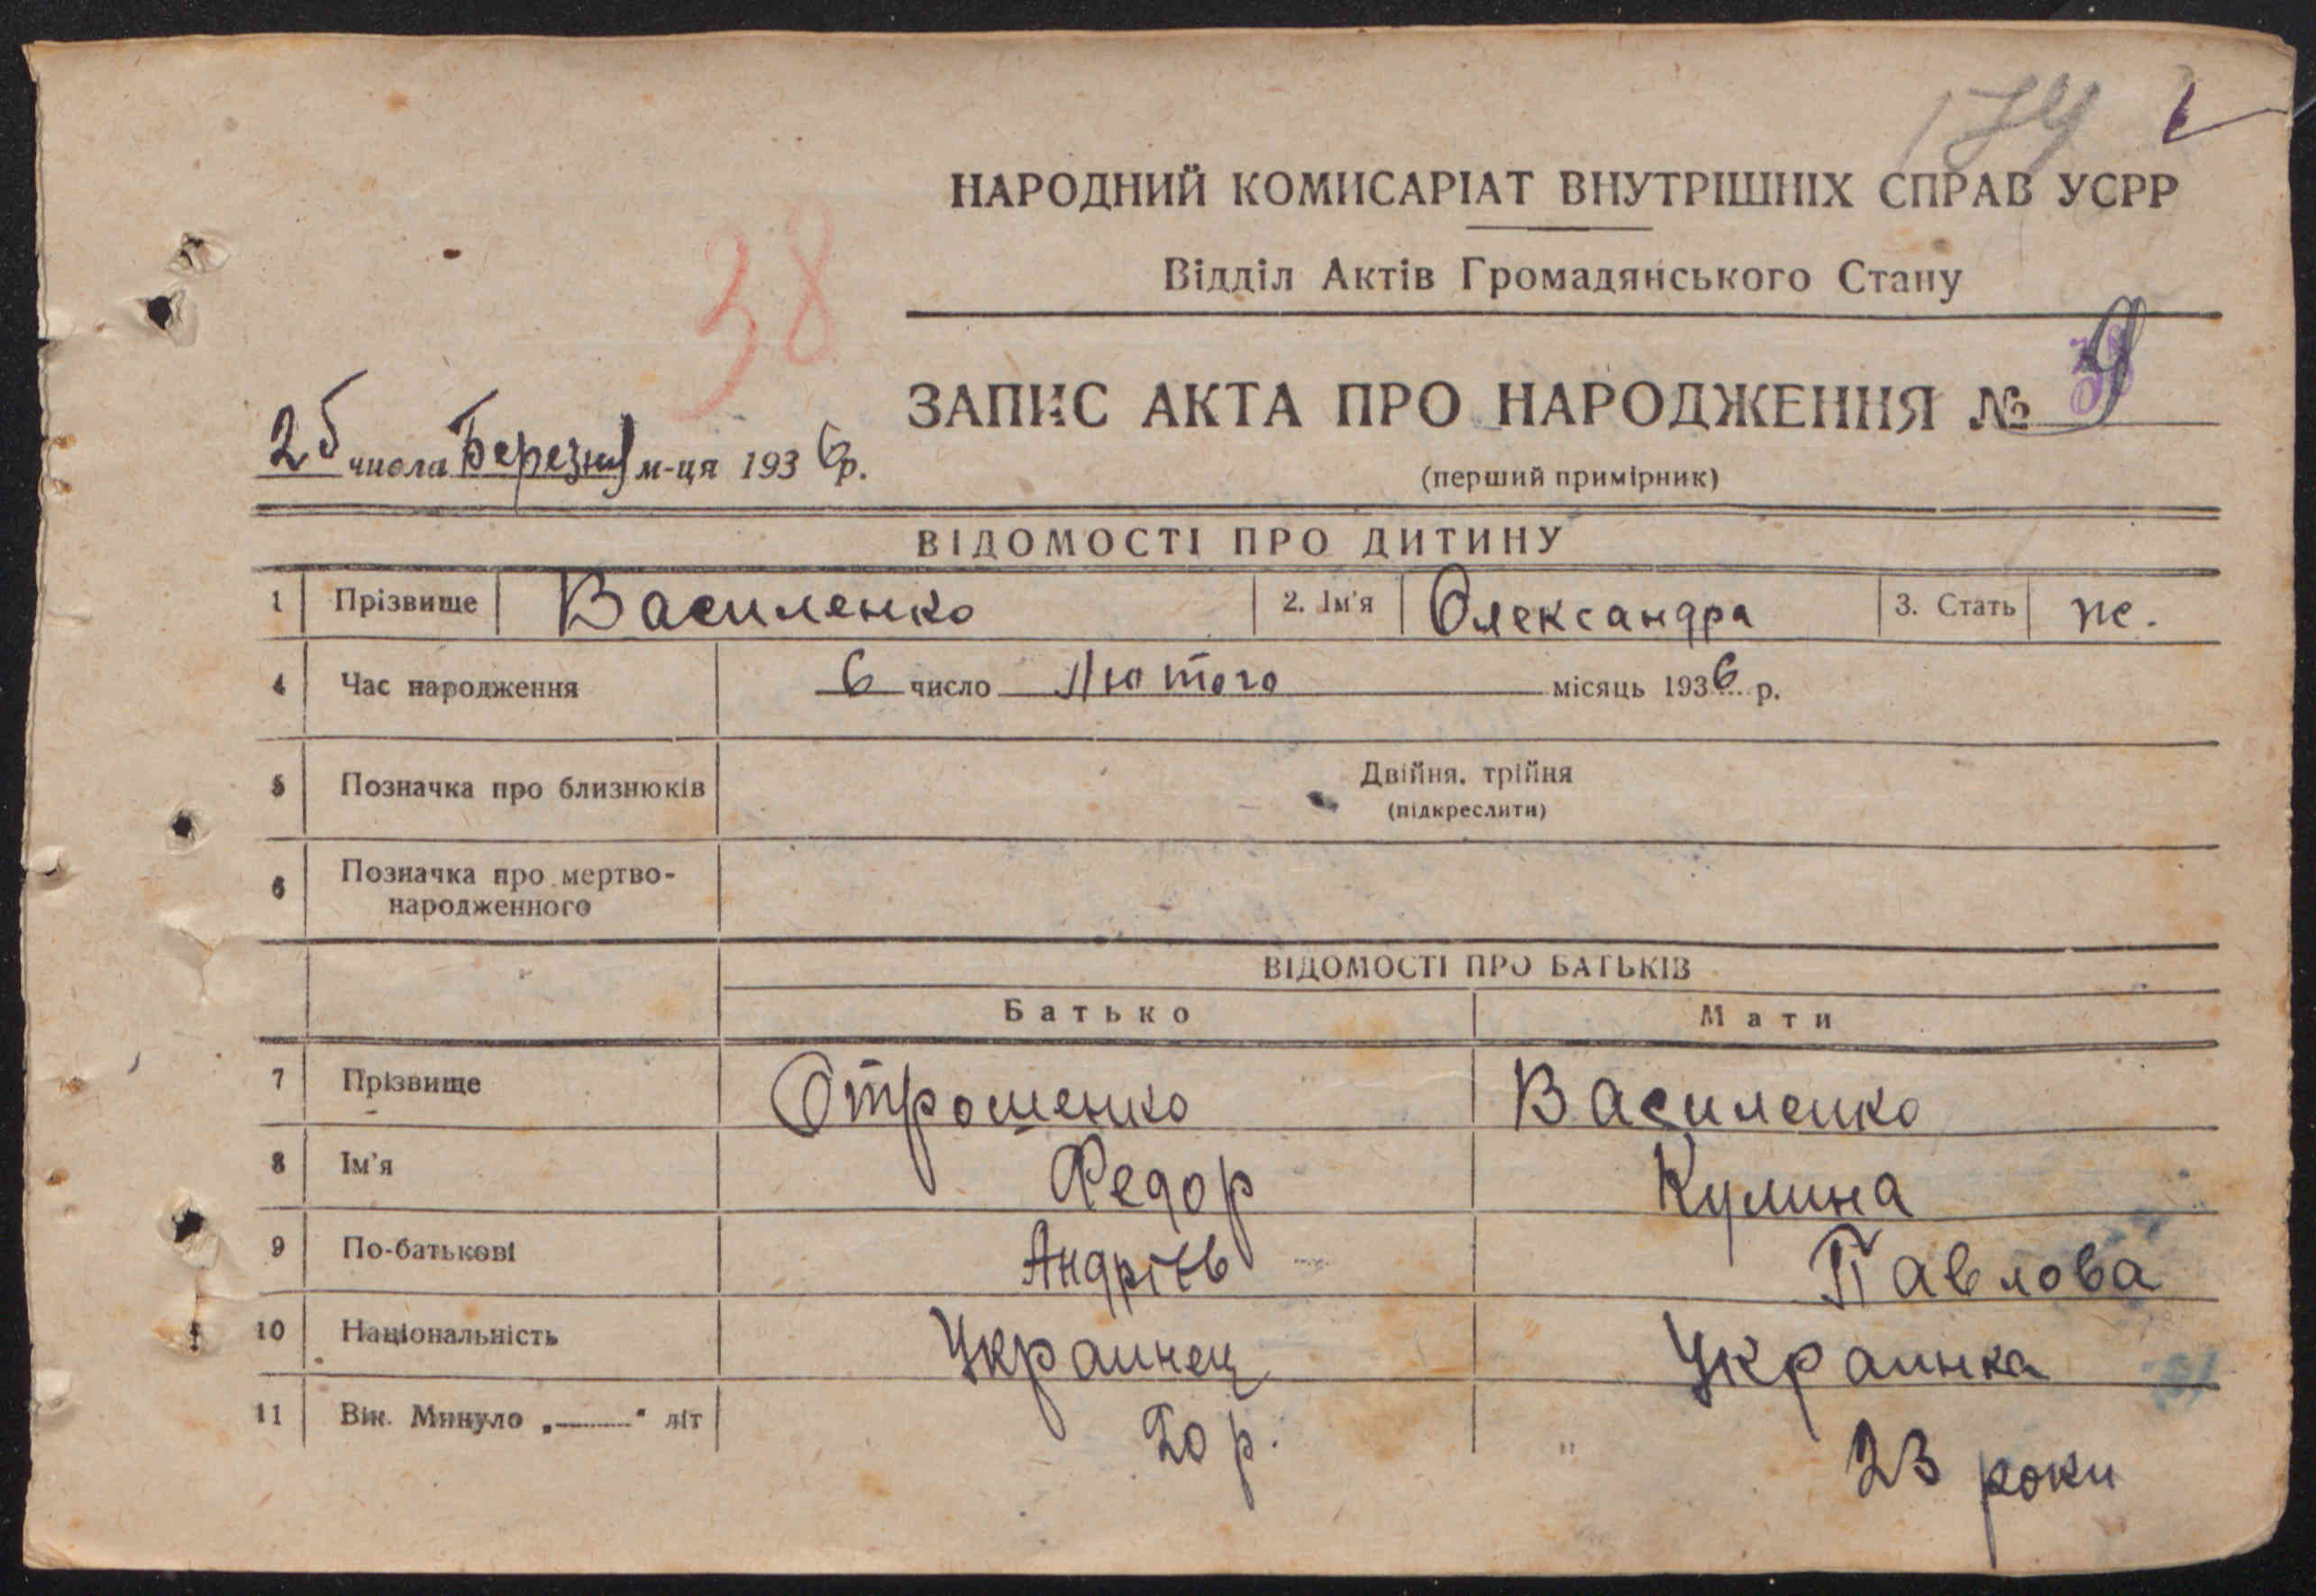 174
НАРОДНИЙ КОМИСАРІАТ ВНУТРІШНІХ СПРАВ УСРР
Відділ Актів Громадянського Стану
38
ЗАПИС АКТА ПРО НАРОДЖЕННЯ № 9
25 числа Березня м-ця 1936 р.
(перший примірник)
ВІДОМОСТІ ПРО ДИТИНУ
1 Прізвище Василенко 2. Ім'я Олександра 3. Стать ж.
4 Час народження 6 число Лютого місяць 1936 р.
5 Позначка про близнюків Двійня, трійня
(підкреслити)
6 Позначка про мертво-
народженного
ВІДОМОСТІ ПРО БАТЬКІВ
Батько Мати
7 Прізвище Отрошенко Василенко
8 Ім'я Федор Кулина
9 По-батькові Андріїв Павлова
10 Національність Украинец Украинка
11 Вік. Минуло „——" літ 20 р. " 23 роки